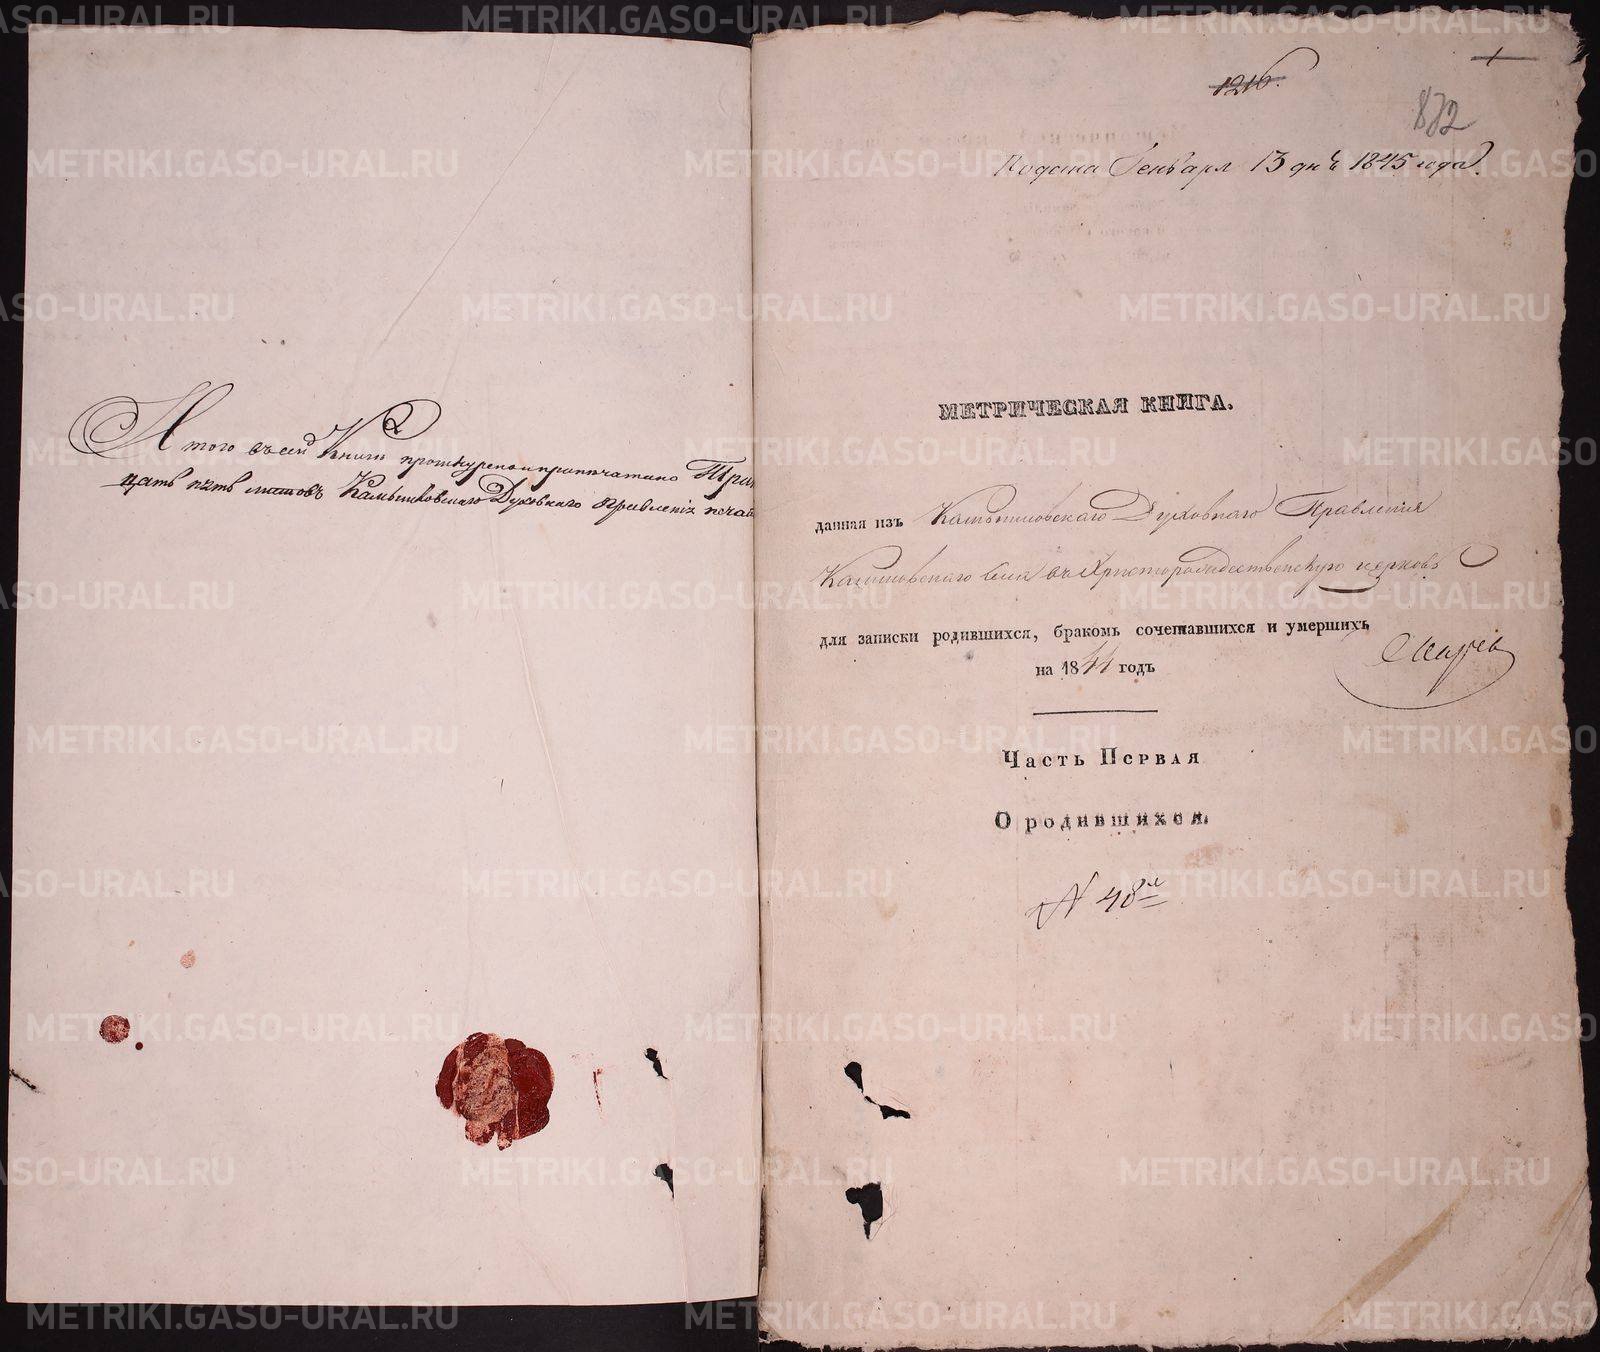 А того въ сей Книги прошнурено и припечатано Трит
цать пять листовъ Камышловскаго Духовнаго Правленія печат
1216.
1
872
Подана Генваря 13 днѣ 1845 года.
МЕТРИЧЕСКАЯ КНИГА.
данная изъ Камышловскаго Духовнаго Правленія
села въ Христорождественскую церковь
для записки родившихся, бракомъ сочетавшихся и умершихъ
на 1844 годъ
Часть Первая
О родившихся.
N 48
METRIKI.GASO-URAL.RU